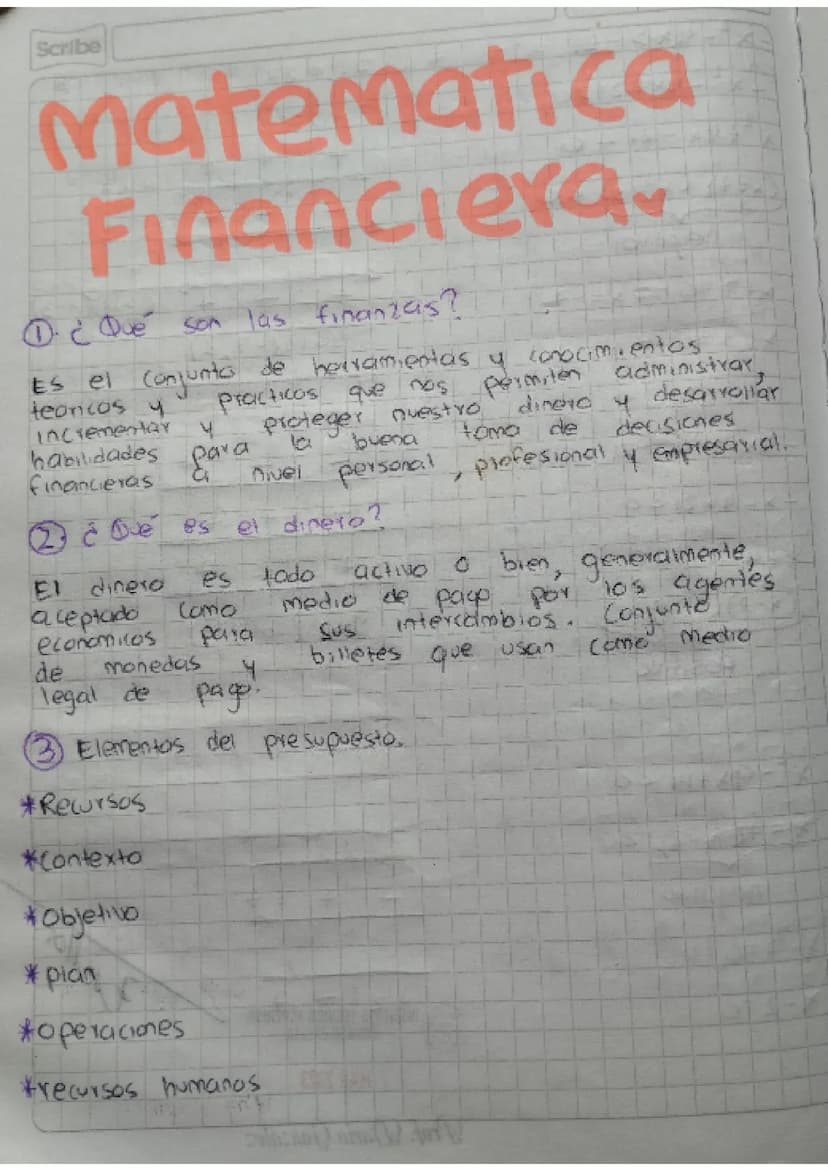 Scribe
Matematica
Financiera
① ¿Qué son las finanzas?
Es el conjunto de herramientas y conocimientos
teoricos y practicos que nos permiten administrar,
incrementar y proteger nuestro dinero y desarrollar
habilidades para la buena toma de decisiones
financieras a nivel personal, profesional y empresarial.
② ¿Qué es el dinero?
El dinero es todo activo o bien, generalmente,
aceptado como medio de pago por los agentes
economicos para sus intercambios. Conjunto
de monedas y billetes que usan como medio
legal de pago.
③ Elementos del presupuesto.
*Recursos
*Contexto
*Objetivo
*plan
*operaciones
*recursos humanos